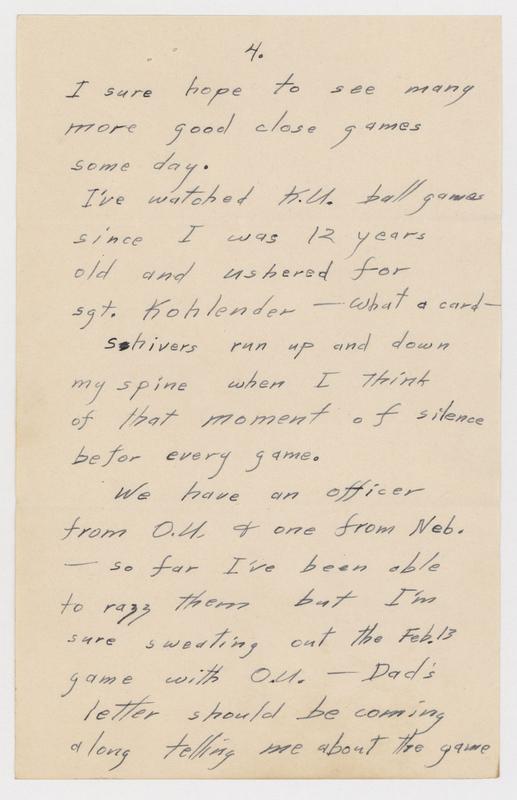 4.
I sure hope to see many
more good close games
some day.
I've watched K.U. ball games
since I was 12 years
old and ushered for
sgt. Kohlender — what a card —
shivers run up and down
my spine when I think
of that moment of silence
befor every game.
We have an officer
from O.U. & one from Neb.
— so far I've been able
to razz them but I'm
sure sweating out the Feb. 13
game with O.U. — Dad's
letter should be coming
along telling me about the game